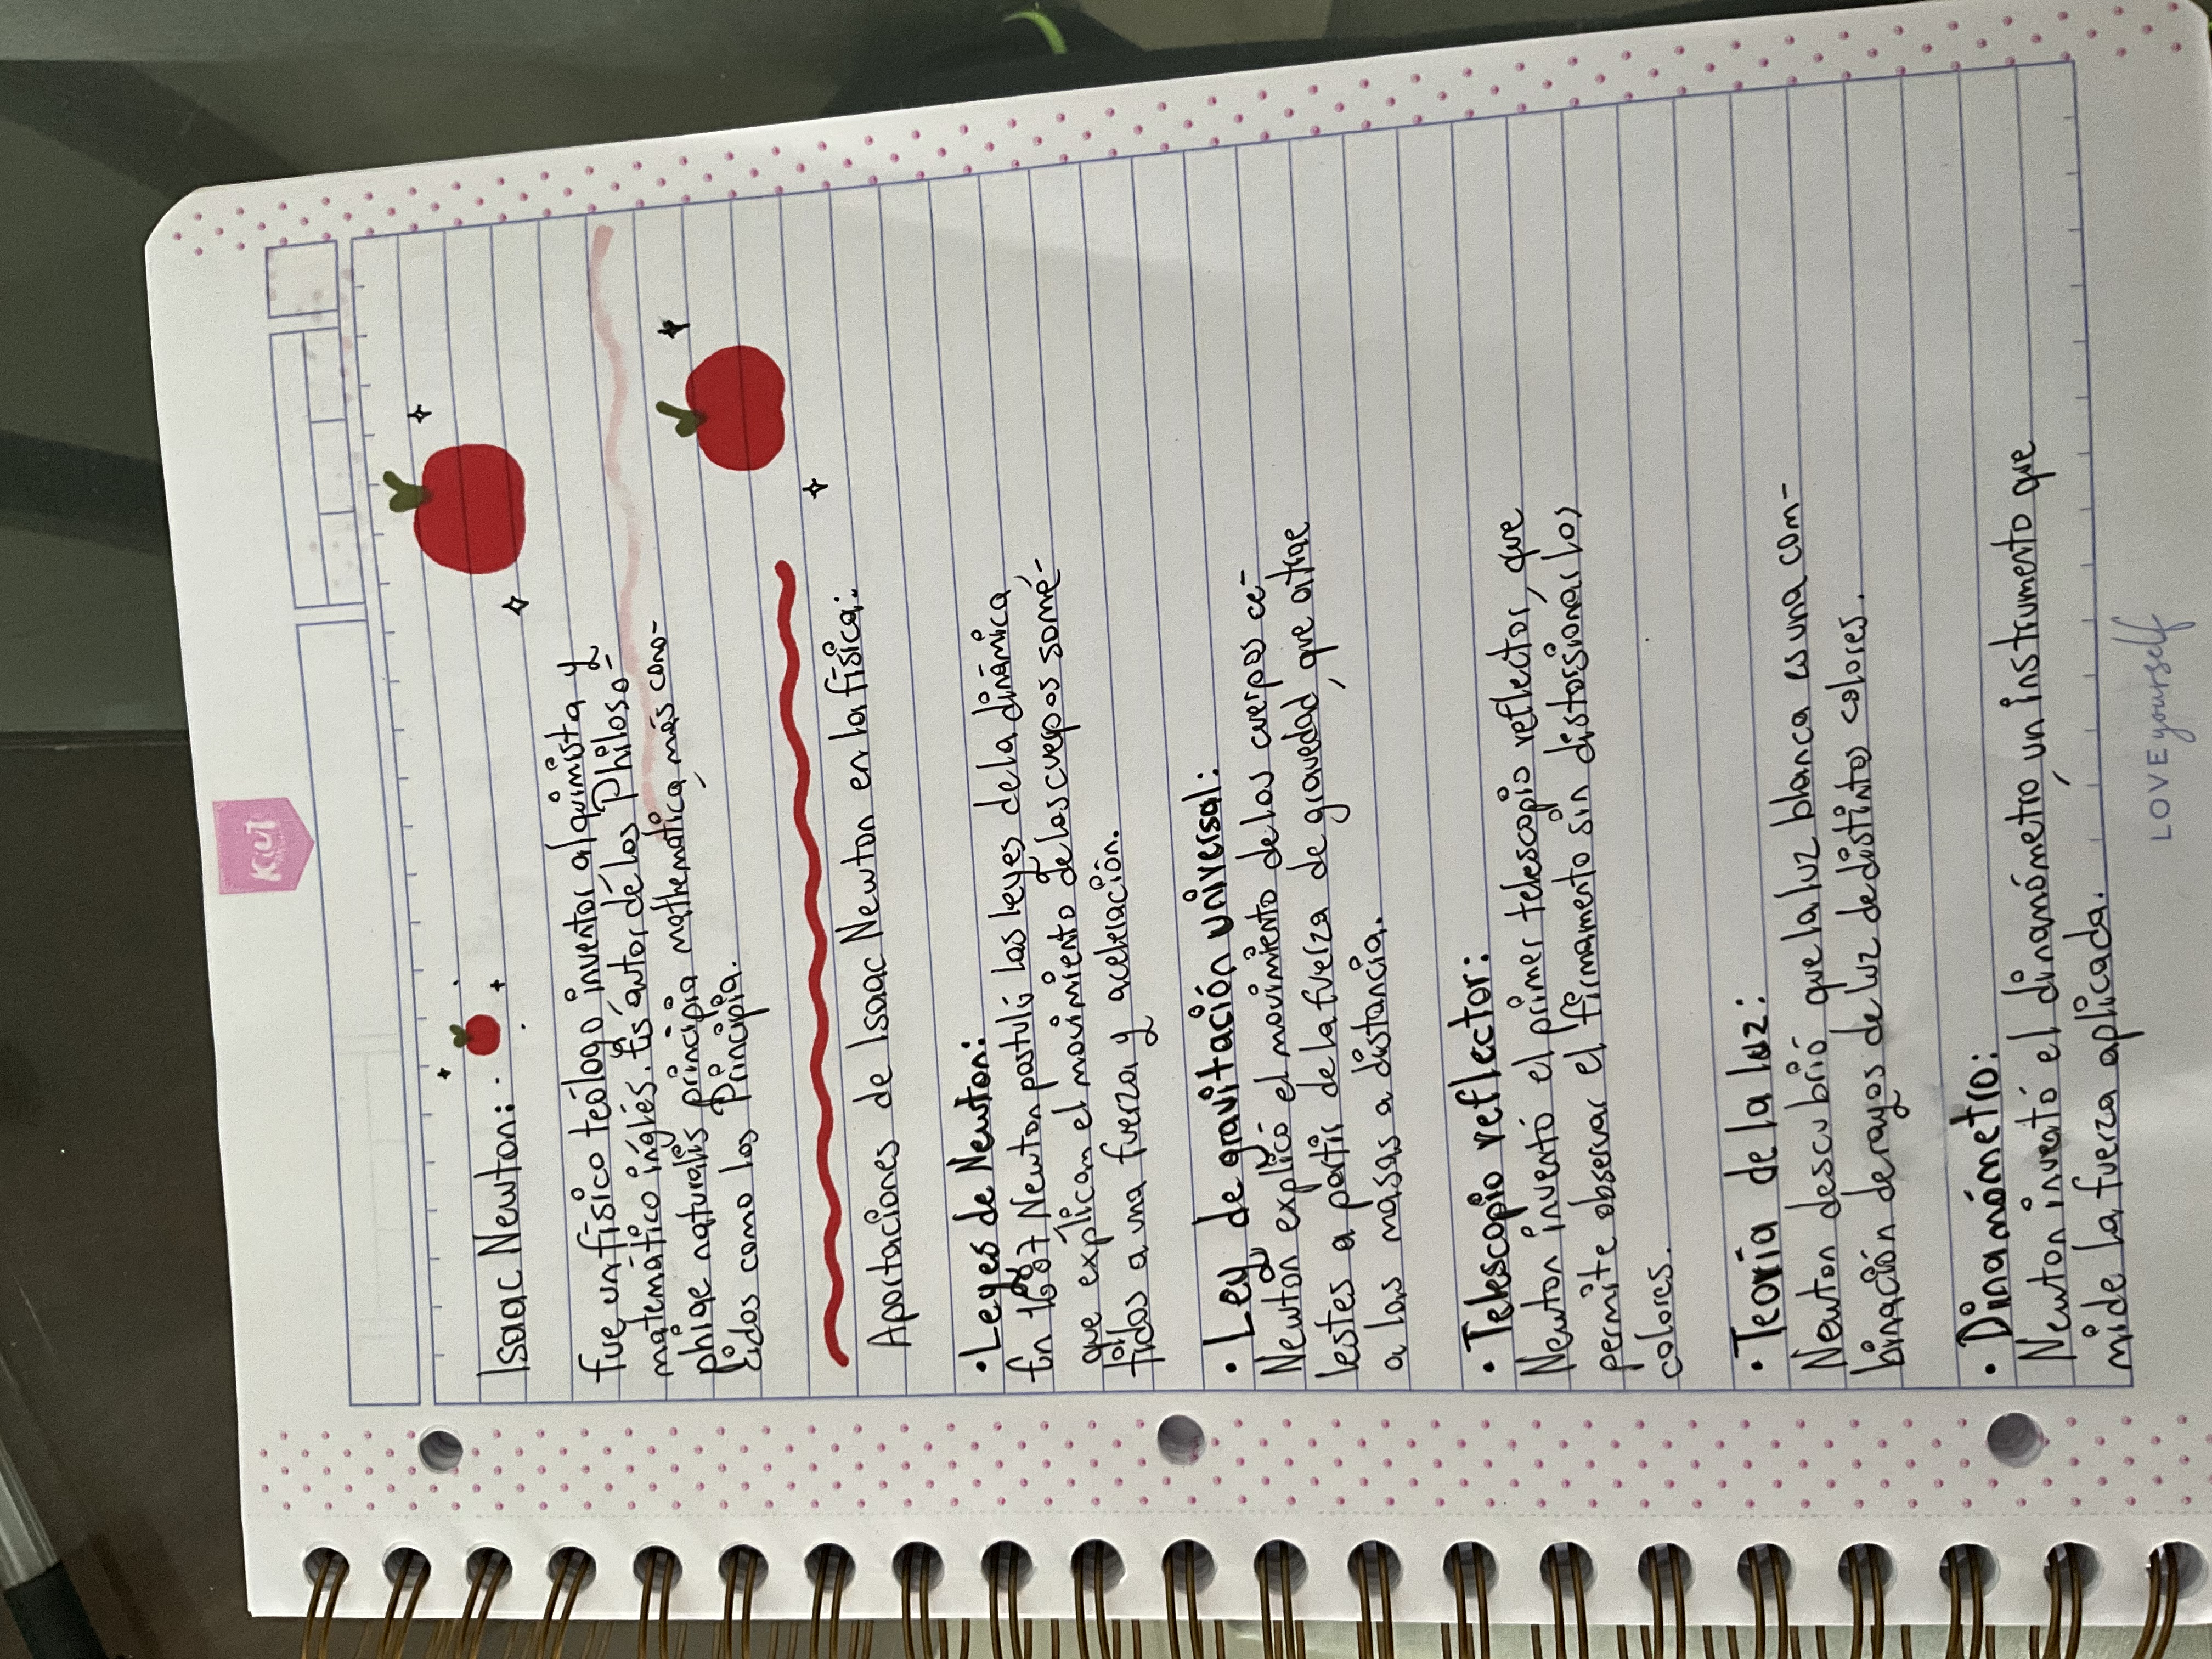 Kiut
Isaac Newton:
fue un físico teólogo inventor alquimista y
matemático inglés. Es autor de los Philoso-
phiae naturalis principia mathematica, más cono-
cidos como los Principia.
Aportaciones de Isaac Newton en la física:
• Leyes de Newton:
En 1687 Newton postuló las leyes de la dinámica,
que explican el movimiento de los cuerpos some-
tidos a una fuerza y aceleración.
• Ley de gravitación universal:
Newton explicó el movimiento de los cuerpos ce-
lestes a partir de la fuerza de gravedad, que atrae
a las masas a distancia.
• Telescopio reflector:
Newton inventó el primer telescopio reflector, que
permite observar el firmamento sin distorsionar los
colores.
• Teoría de la luz:
Newton descubrió que la luz blanca es una com-
binación de rayos de luz de distintos colores.
• Dinamómetro:
Newton inventó el dinamómetro, un instrumento que
mide la fuerza aplicada.
LOVE yourself